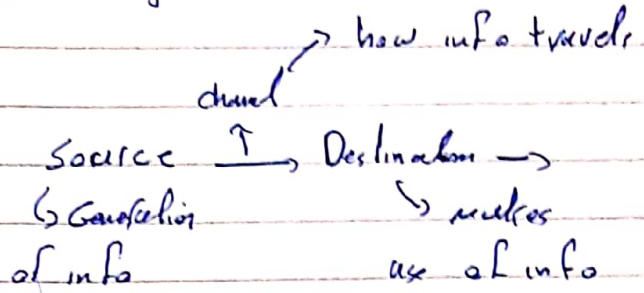 how info travels
channel
Source → Destination →
↳ Generation ↳ makes
of info use of info